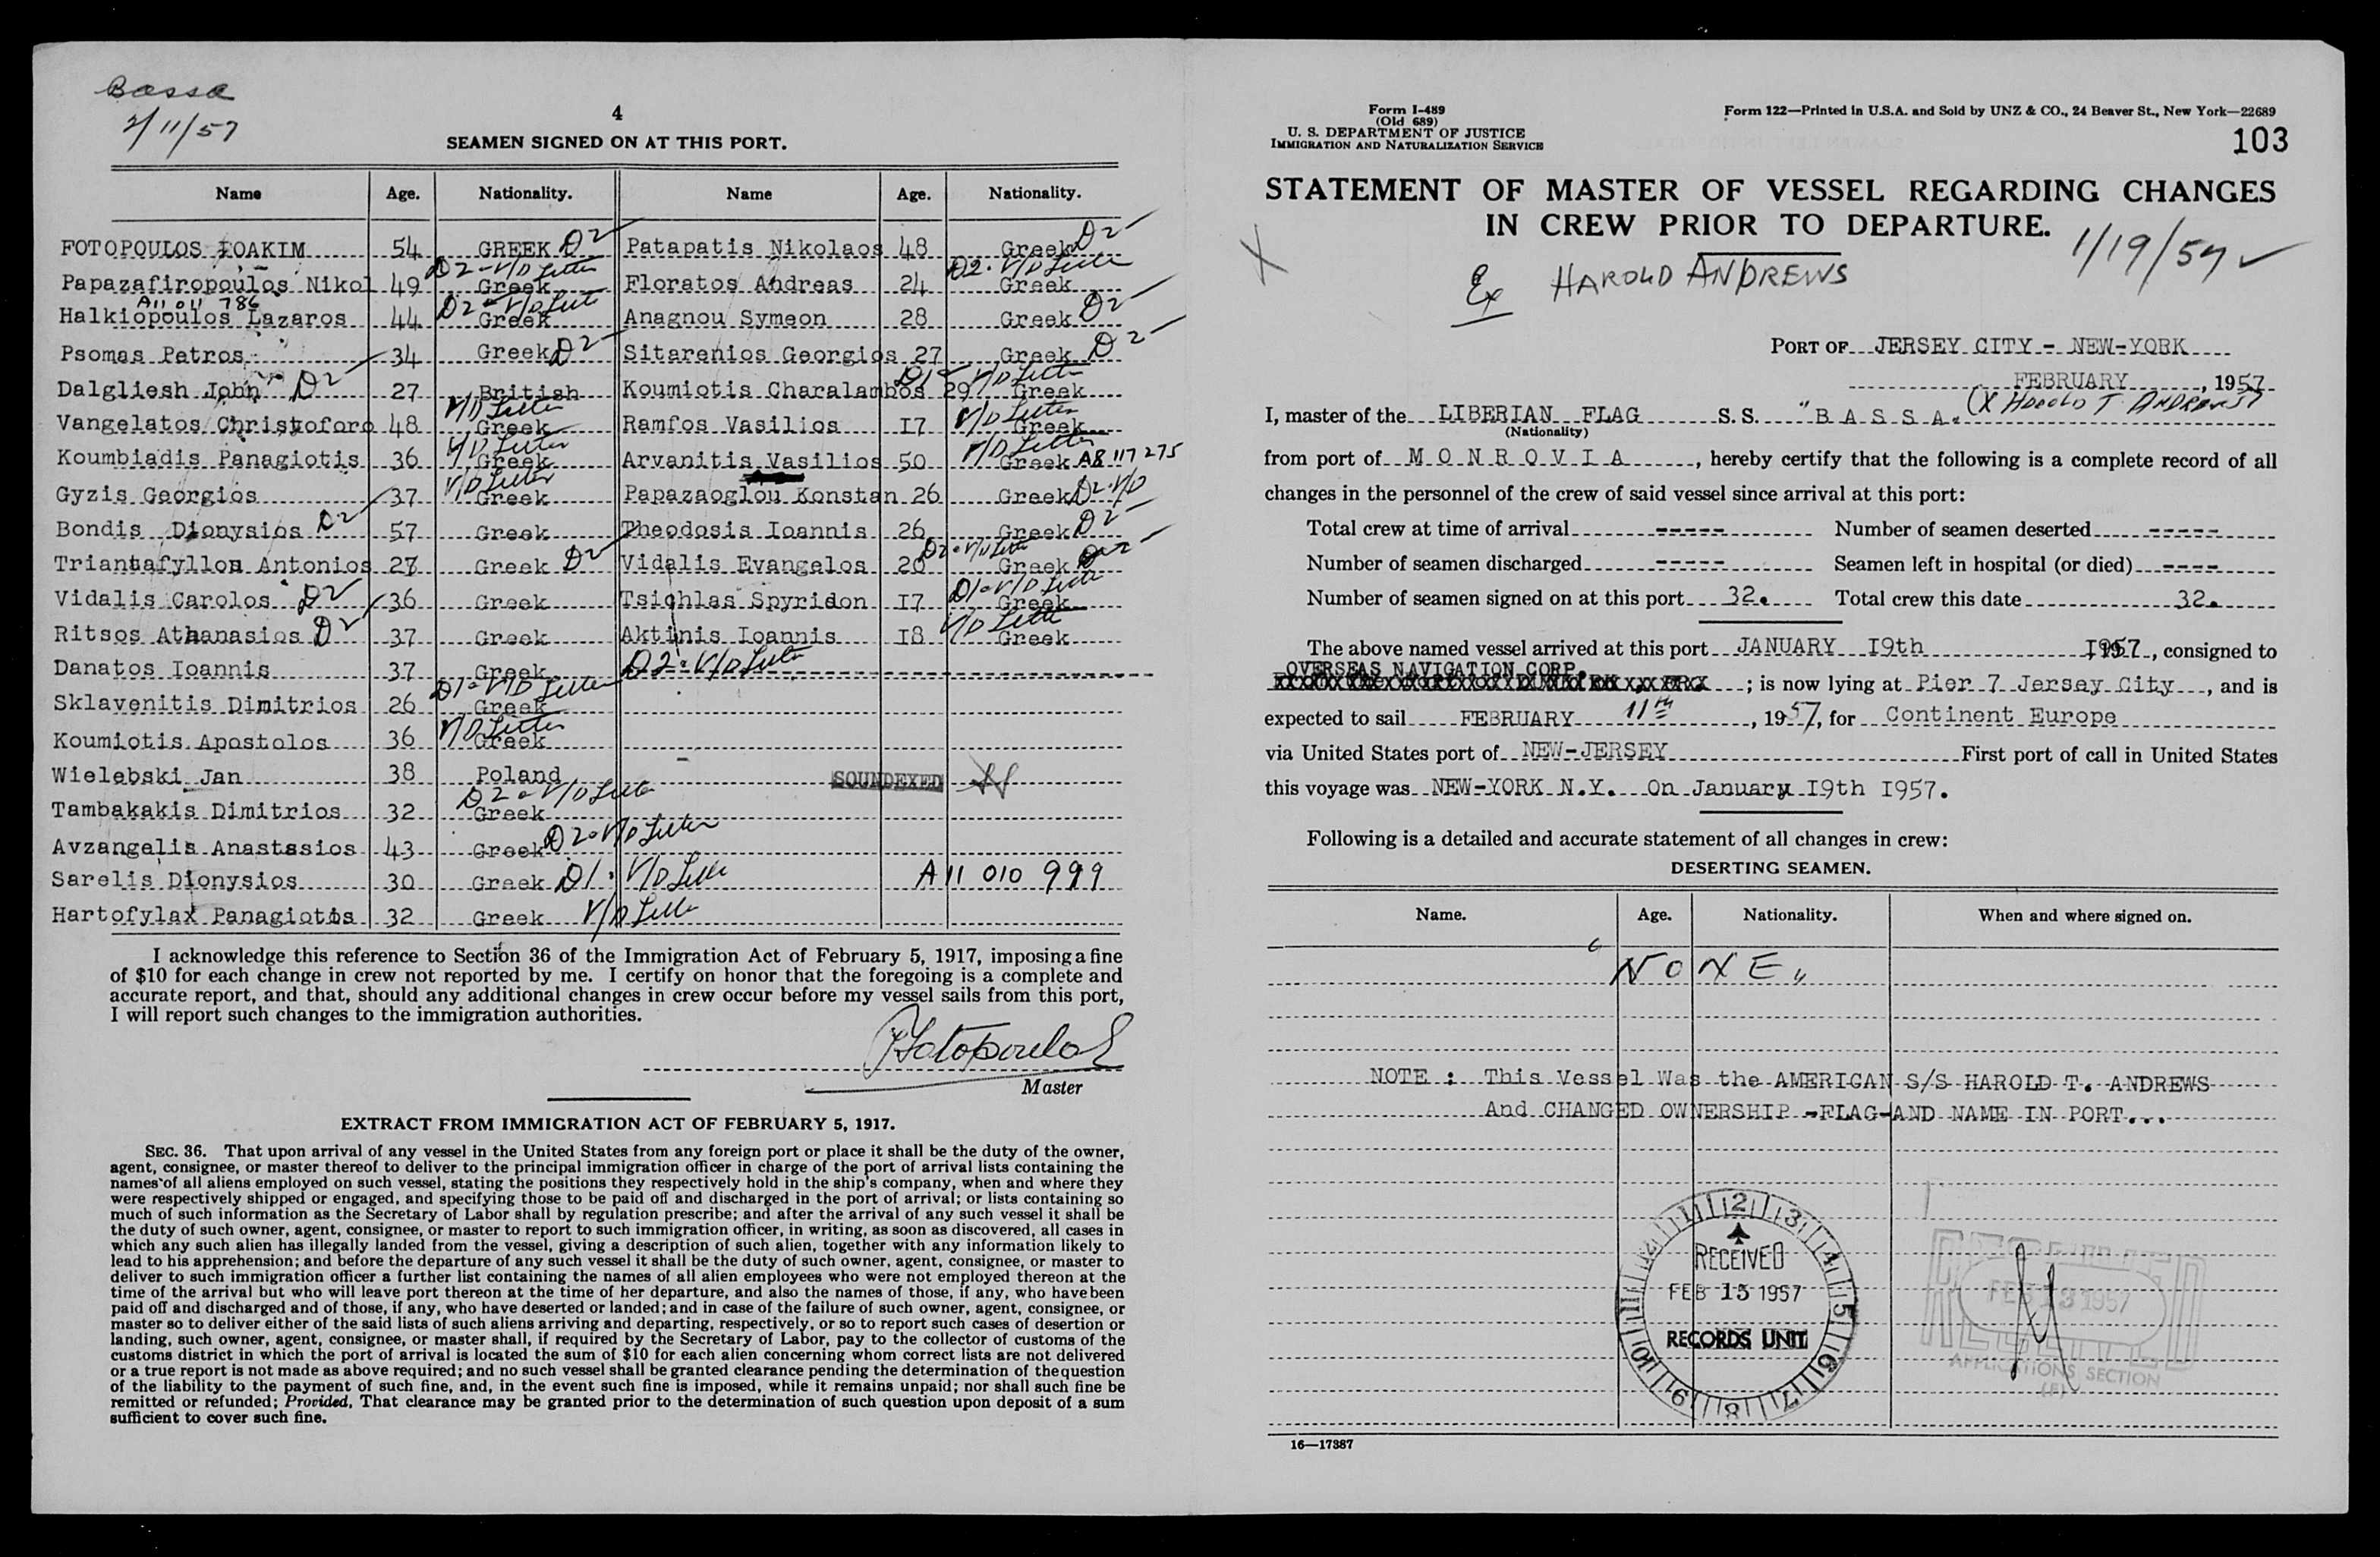 Bassa
2/11/57
4
SEAMEN SIGNED ON AT THIS PORT.
Name Age. Nationality. Name Age. Nationality.
FOTOPOULOS IOAKIM 54 GREEK D2 Patapatis Nikolaos 48 Greek D2
Papazafiropoulos Nikol 49 D2 - V/D Letter Greek Floratos Andreas 24 D2 - V/D Letter Greek
A11 011 786
Halkiopoulos Lazaros 44 D2 - V/D Lett Greek Anagnou Symeon 28 Greek D2
Psomas Petros 34 Greek D2 Sitarenios Georgios 27 Greek D2
Dalgliesh John D2 27 British Koumiotis Charalambos 29 D1 - V/D Lett Greek
Vangelatos Christoforo 48 V/D Letter Greek Ramfos Vasilios I7 V/D Letter Greek
Koumbiadis Panagiotis 36 V/D Letter Greek Arvanitis Vasilios 50 V/D Letter Greek A8 117 275
Gyzis Georgios 37 V/D Letter Greek Papazaoglou Konstan 26 Greek D2 - V/D
Bondis Dionysios D2 57 Greek Theodosis Ioannis 26 Greek D2
Triantafyllos Antonios 27 Greek D2 Vidalis Evangelos 20 D2 - V/D Lett Greek D2
Vidalis Carolos D2 36 Greek Tsichlas Spyridon I7 D1 - V/D Lett Greek
Ritsos Athanasios D2 37 Greek Aktinis Ioannis I8 V/D Lett Greek
Danatos Ioannis 37 Greek D2 - V/D Letter
Sklavenitis Dimitrios 26 D1 - V/D Letter Greek
Koumiotis Apostolos 36 V/D Letter Greek
Wielebski Jan 38 Poland SOUNDEXED
Tambakakis Dimitrios 32 D2 - V/D Letter Greek
Avzangelis Anastasios 43 Greek D2 - V/D Letter
Sarelis Dionysios 30 Greek D1 - V/D Letter A 11 010 999
Hartofylax Panagiotis 32 Greek V/D Letter
I acknowledge this reference to Section 36 of the Immigration Act of February 5, 1917, imposing a fine
of $10 for each change in crew not reported by me. I certify on honor that the foregoing is a complete and
accurate report, and that, should any additional changes in crew occur before my vessel sails from this port,
I will report such changes to the immigration authorities.
Master
EXTRACT FROM IMMIGRATION ACT OF FEBRUARY 5, 1917.
SEC. 36. That upon arrival of any vessel in the United States from any foreign port or place it shall be the duty of the owner,
agent, consignee, or master thereof to deliver to the principal immigration officer in charge of the port of arrival lists containing the
names of all aliens employed on such vessel, stating the positions they respectively hold in the ship's company, when and where they
were respectively shipped or engaged, and specifying those to be paid off and discharged in the port of arrival; or lists containing so
much of such information as the Secretary of Labor shall by regulation prescribe; and after the arrival of any such vessel it shall be
the duty of such owner, agent, consignee, or master to report to such immigration officer, in writing, as soon as discovered, all cases in
which any such alien has illegally landed from the vessel, giving a description of such alien, together with any information likely to
lead to his apprehension; and before the departure of any such vessel it shall be the duty of such owner, agent, consignee, or master to
deliver to such immigration officer a further list containing the names of all alien employees who were not employed thereon at the
time of the arrival but who will leave port thereon at the time of her departure, and also the names of those, if any, who have been
paid off and discharged and of those, if any, who have deserted or landed; and in case of the failure of such owner, agent, consignee, or
master so to deliver either of the said lists of such aliens arriving and departing, respectively, or so to report such cases of desertion or
landing, such owner, agent, consignee, or master shall, if required by the Secretary of Labor, pay to the collector of customs of the
customs district in which the port of arrival is located the sum of $10 for each alien concerning whom correct lists are not delivered
or a true report is not made as above required; and no such vessel shall be granted clearance pending the determination of the question
of the liability to the payment of such fine, and, in the event such fine is imposed, while it remains unpaid; nor shall such fine be
remitted or refunded; Provided, That clearance may be granted prior to the determination of such question upon deposit of a sum
sufficient to cover such fine.
Form I-489
(Old 689)
U. S. DEPARTMENT OF JUSTICE
IMMIGRATION AND NATURALIZATION SERVICE
Form 122—Printed in U.S.A. and Sold by UNZ & CO., 24 Beaver St., New York—22689
103
STATEMENT OF MASTER OF VESSEL REGARDING CHANGES
IN CREW PRIOR TO DEPARTURE.
X
Ex HAROLD ANDREWS
1/19/57
PORT OF JERSEY CITY - NEW-YORK
FEBRUARY, 1957
I, master of the LIBERIAN FLAG S. S. "B A S S A" (X HAROLD T ANDREWS)
(Nationality)
from port of M O N R O V I A, hereby certify that the following is a complete record of all
changes in the personnel of the crew of said vessel since arrival at this port:
Total crew at time of arrival ----- Number of seamen deserted -----
Number of seamen discharged ----- Seamen left in hospital (or died) ----
Number of seamen signed on at this port 32. Total crew this date 32.
The above named vessel arrived at this port JANUARY I9th I957, consigned to
OVERSEAS NAVIGATION CORP.
; is now lying at Pier 7 Jersey City, and is
expected to sail FEBRUARY 11th, 1957, for Continent Europe
via United States port of NEW-JERSEY First port of call in United States
this voyage was NEW-YORK N.Y. On January I9th I957.
Following is a detailed and accurate statement of all changes in crew:
DESERTING SEAMEN.
Name. Age. Nationality. When and where signed on.
"NONE"
NOTE : This Vessel Was the AMERICAN S/S HAROLD T. ANDREWS
And CHANGED OWNERSHIP -FLAG-AND NAME IN PORT...
RECEIVED
FEB 15 1957
RECORDS UNIT
FEB 13 1957
APPLICATIONS SECTION
(F)
16—17387